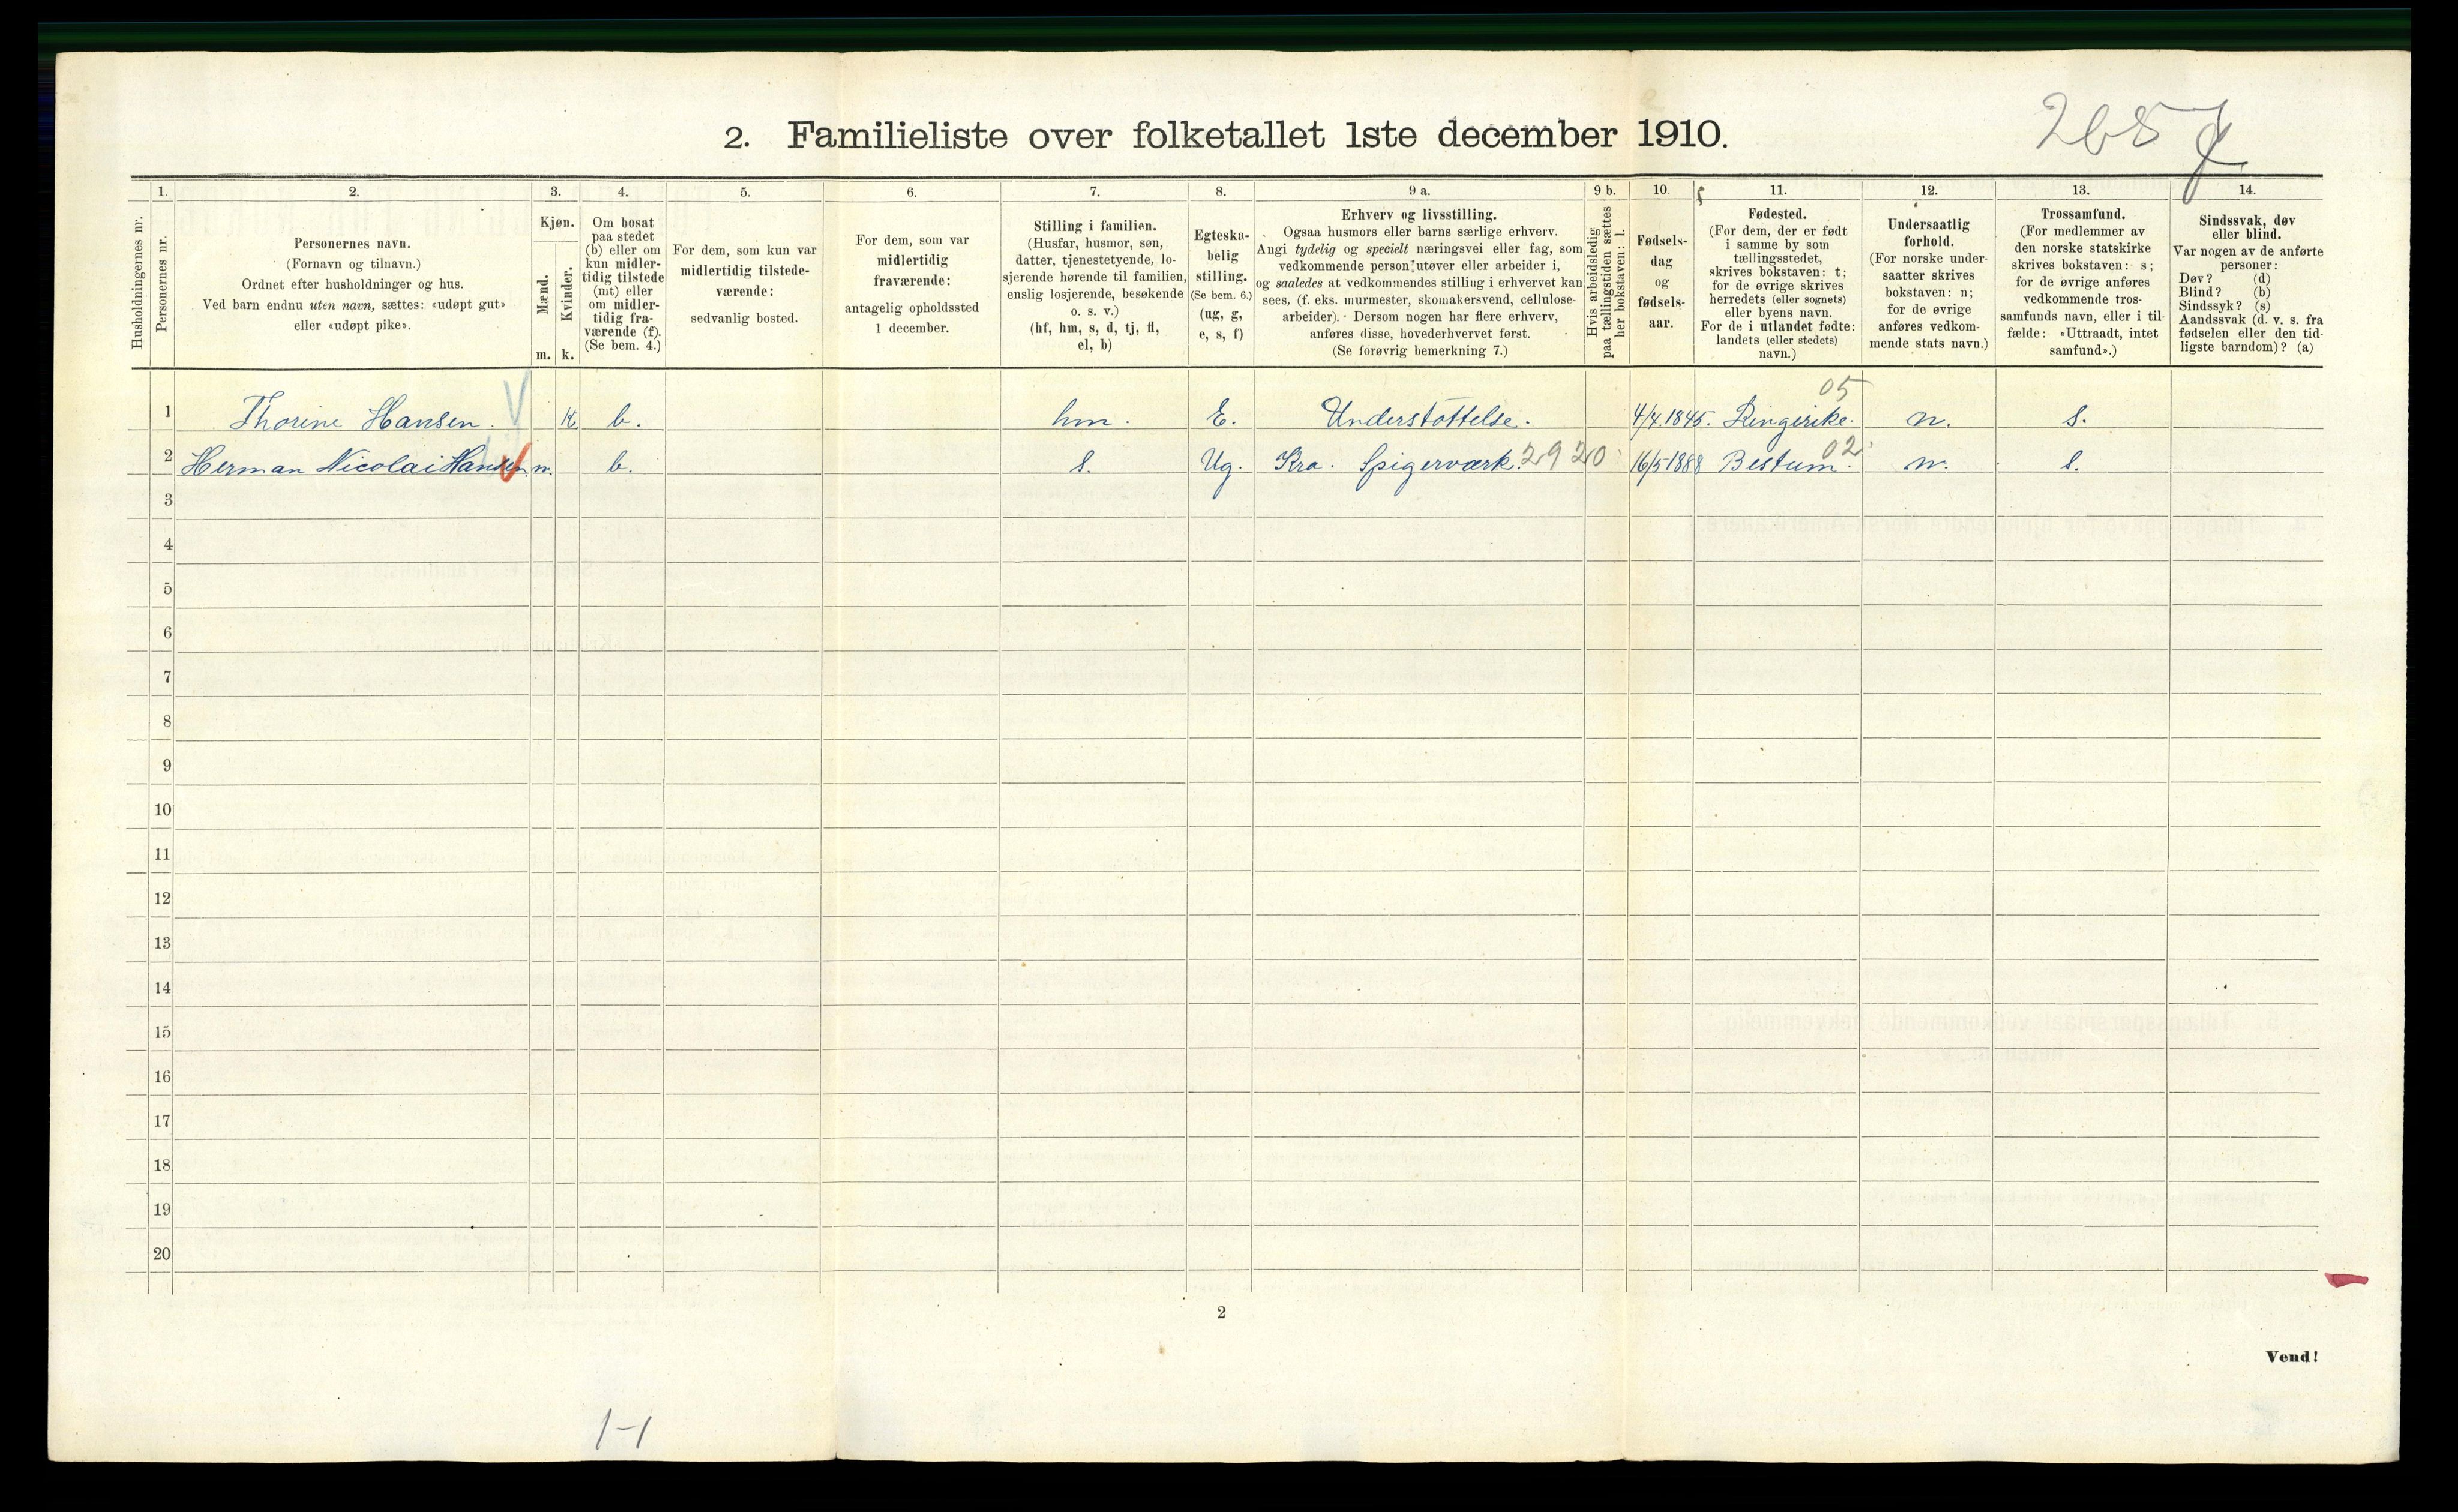 2. Familieliste over folketallet 1ste december 1910.
1. 2. 3. 4. 5. 6. 7. 8. 9 a. 9 b. 10. 11. 12. 13. 14.
Husholdningernes nr.
Personernes nr.
Personernes navn.
(Fornavn og tilnavn.)
Ordnet efter husholdninger og hus.
Ved barn endnu uten navn, sættes: «udøpt gut»
eller «udøpt pike».
Kjøn.
Mænd.
Kvinder.
m. k.
Om bosat
paa stedet
(b) eller om
kun midler-
tidig tilstede
(mt) eller
om midler-
tidig fra-
værende (f).
(Se bem. 4.)
For dem, som kun var
midlertidig tilstede-
værende:
sedvanlig bosted.
For dem, som var
midlertidig
fraværende:
antagelig opholdssted
1 december.
Stilling i familien.
(Husfar, husmor, søn,
datter, tjenestetyende, lo-
sjerende hørende til familien,
enslig losjerende, besøkende
o. s. v.)
(hf, hm, s, d, tj, fl,
el, b)
Egteska-
belig
stilling.
(Se bem. 6.)
(ug, g,
e, s, f)
Erhverv og livsstilling.
Ogsaa husmors eller barns særlige erhverv.
Angi tydelig og specielt næringsvei eller fag, som
vedkommende person utøver eller arbeider i,
og saaledes at vedkommendes stilling i erhvervet kan
sees, (f. eks. murmester, skomakersvend, cellulose-
arbeider). Dersom nogen har flere erhverv,
anføres disse, hovederhvervet først.
(Se forøvrig bemerkning 7.)
Hvis arbeidsledig
paa tællingstiden sættes
her bokstaven: l.
Fødsels-
dag
og
fødsels-
aar.
Fødested.
(For dem, der er født
i samme by som
tællingsstedet,
skrives bokstaven: t;
for de øvrige skrives
herredets (eller sognets)
eller byens navn.
For de i utlandet fødte:
landets (eller stedets)
navn.)
Undersaatlig
forhold.
(For norske under-
saatter skrives
bokstaven: n;
for de øvrige
anføres vedkom-
mende stats navn.)
Trossamfund.
(For medlemmer av
den norske statskirke
skrives bokstaven: s;
for de øvrige anføres
vedkommende tros-
samfunds navn, eller i til-
fælde: «Uttraadt, intet
samfund».)
Sindssvak, døv
eller blind.
Var nogen av de anførte
personer:
Døv? (d)
Blind? (b)
Sindssyk? (s)
Aandssvak (d. v. s. fra
fødselen eller den tid-
ligste barndom)? (a)
05
1 Thorine Hansen. k. b. hm. E. Understøttelse. 4/4.1845. Ringerike. n. s.
2 Herman Nicolai Hansen. m. b. s. Ug. Kra. Spigerværk. 2920 16/5 1888 Bestum. 02 n. s.
3
4
5
6
7
8
9
10
11
12
13
14
15
16
17
18
19
20
2
Vend!
1-1